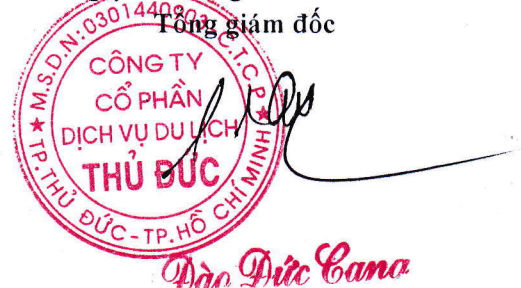 Tổng giám đốc
M.S.D.N: 0301440803 C.T.C.P
CÔNG TY
CỔ PHẦN
DỊCH VỤ DU LỊCH
THỦ ĐỨC
TP. THỦ ĐỨC - TP. HỒ CHÍ MINH
Đào Đức Cang